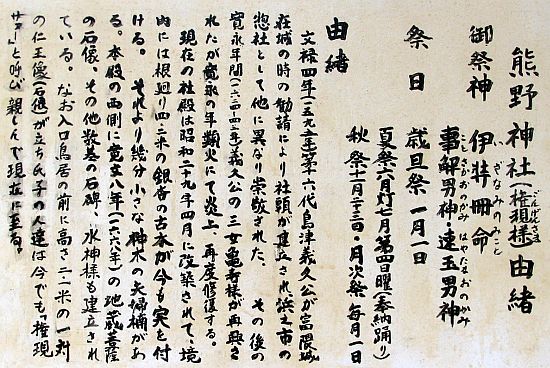 熊野神社(権現様)由緒
ごんげんさま
御祭神 伊弉冊命
いざなみのみこと
事解男神・速玉男神
ことさかおのかみ はやたまおのかみ
祭日 歳旦祭 一月一日
夏祭六月灯七月第四日曜(奉納踊り)
秋祭十一月二十三日・月次祭 毎月一日
由緒
文禄四年(一五九五年)第十六代島津義久公が富隈城
在城の時の勧請により社頭が建立され浜之市の
惣社として他に異なり崇敬された。 その後の
寛永年間(一六二四-四三年)義久公の三女亀寿様が再興さ
れたが寛永の年類火にて炎上、再度修復する。
現在の社殿は昭和二十九年四月に改築されて、境
内には根廻り四・二米の銀杏の古木が今も実を付
ける。 それより幾分小さな神木の夫婦楠があ
る。本殿の西側に寛文八年(一六六八年)の地蔵菩薩
の石像、その他数基の石碑、水神様も建立され
ている。 なお入口鳥居の前に高さ二・二米の一対
の仁王像(石造)が立ち氏子の人達は今でも「権現
サァー」と呼び親しんで現在に至る。